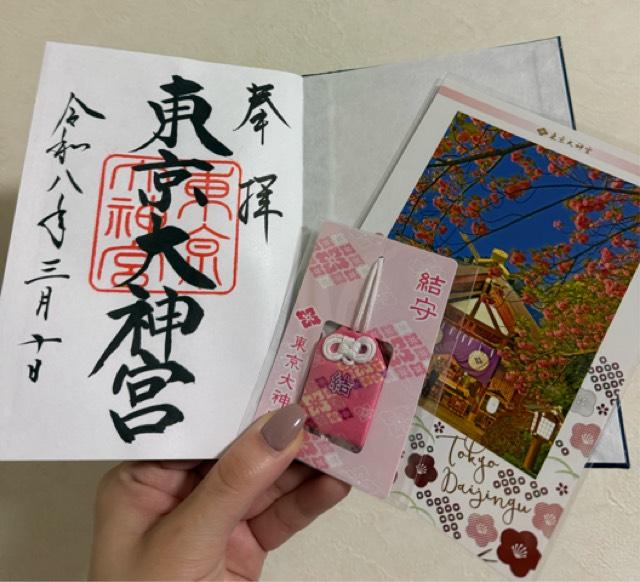 奉拝
東京大神宮
東京
大神宮
令和八年三月十日
結守
結
東京大神
東京大神宮
Tokyo
Daijingu